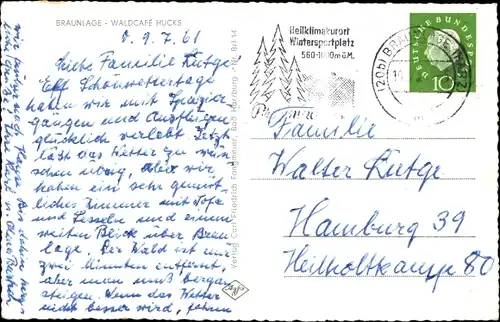 BRAUNLAGE - WALDCAFÉ HUCKS
d. 9.7.61
Liebe Familie Rutge
Elf Schönwettertage
haben wir mit Spazier
gängen und Ausflügen
glücklich verlebt. Jetzt
läßt das Wetter zu wün
schen übrig, aber wir
haben ein sehr gemüt
liches Zimmer mit Sofa
und Sesseln und einen
weiten Blick über Brau
lage. Der Wald ist nur
zwei Minuten entfernt,
aber man muß bergan
steigen. Wenn das Wetter
nicht besser wird, fahren
wir nach Hause. Bis dahin
Verlag Carl Friedrich Fangmeier, Bad Harzburg - Nr. Brl 54
Heilklimakurort
Wintersportplatz
560-1000m ü.M.
(20b) BRAUNLAGE (HARZ)
DEUTSCHE BUNDESPOST
10
Familie
Walter Rutge
Hamburg 39
Heilholtkamp 80